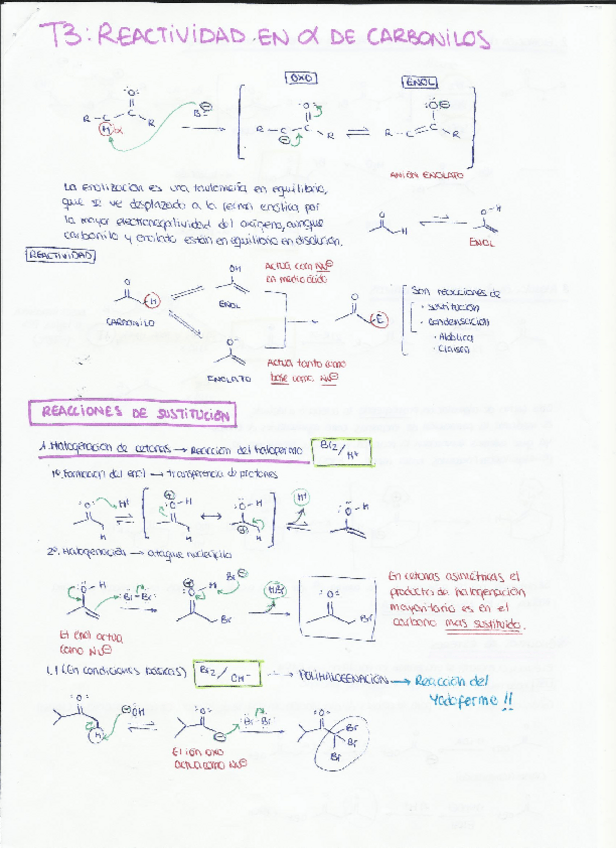 T3: REACTIVIDAD EN α DE CARBONILOS
OXO
ENOL
ANIÓN ENOLATO
La enolización es una tautomería en equilibrio,
que se ve desplazado a la forma enólica por
la mayor electronegatividad del oxígeno, aunque
carbonilo y enolato están en equilibrio en disolución.
ENOL
REACTIVIDAD
CARBONILO
OH
ENOL
Actúa con Nu⊖
en medio ácido
ENOLATO
Actúa tanto como
base como Nu⊖
Son reacciones de
· sustitución
· condensación
· Aldólica
· Claisen
REACCIONES DE SUSTITUCIÓN
1. Halogenación de cetonas → Reacción del haloformo
Br2/H+
1º. Formación del enol → transferencia de protones
2º. Halogenación → ataque nucleófilo
El enol actúa
como Nu⊖
HBr
En cetonas asimétricas el
producto de halogenación
mayoritario es en el
carbono más sustituido.
1.1 (En condiciones básicas)
Br2/OH-
→ POLIHALOGENACIÓN → Reacción del
Yodoformo !!
El ión oxo
actúa como Nu⊖